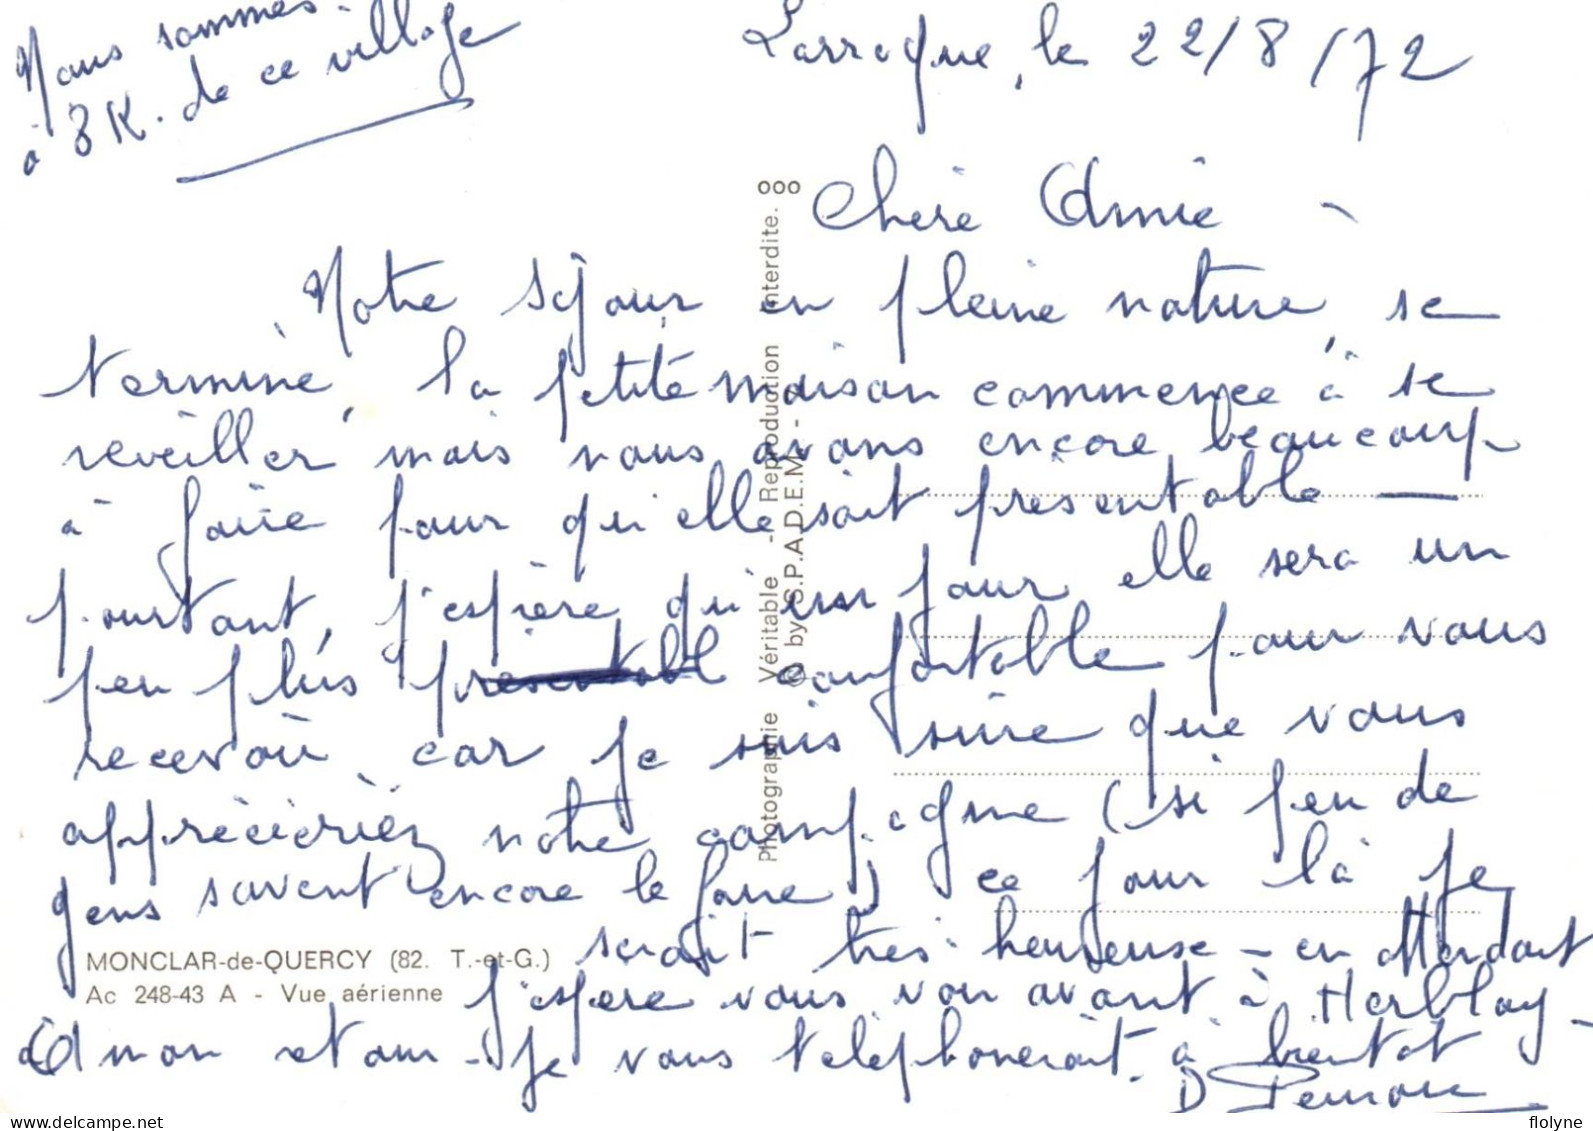 Nous sommes
à 8 K. de ce village
Larroque, le 22/8/72
Chère Amie -
Notre séjour en pleine nature, se
termine, la petite maison commence à se
réveiller mais nous avons encore beaucoup
à faire pour qu'elle soit présentable —
pourtant, j'espère qu'un jour elle sera un
peu plus confortable pour vous
recevoir, car je suis sûre que vous
apprécieriez notre campagne (si peu de
gens savent encore le faire) ce jour là je
serait très heureuse - en attendant
j'espère vous voir avant à Herblay -
à mon retour - je vous téléphonerait à bientot
D
MONCLAR-de-QUERCY (82. T.-et-G.)
Ac 248-43 A - Vue aérienne
Photographie Véritable - Reproduction interdite. ooo
© by S.P.A.D.E.M. -
delcampe.net
flolyne